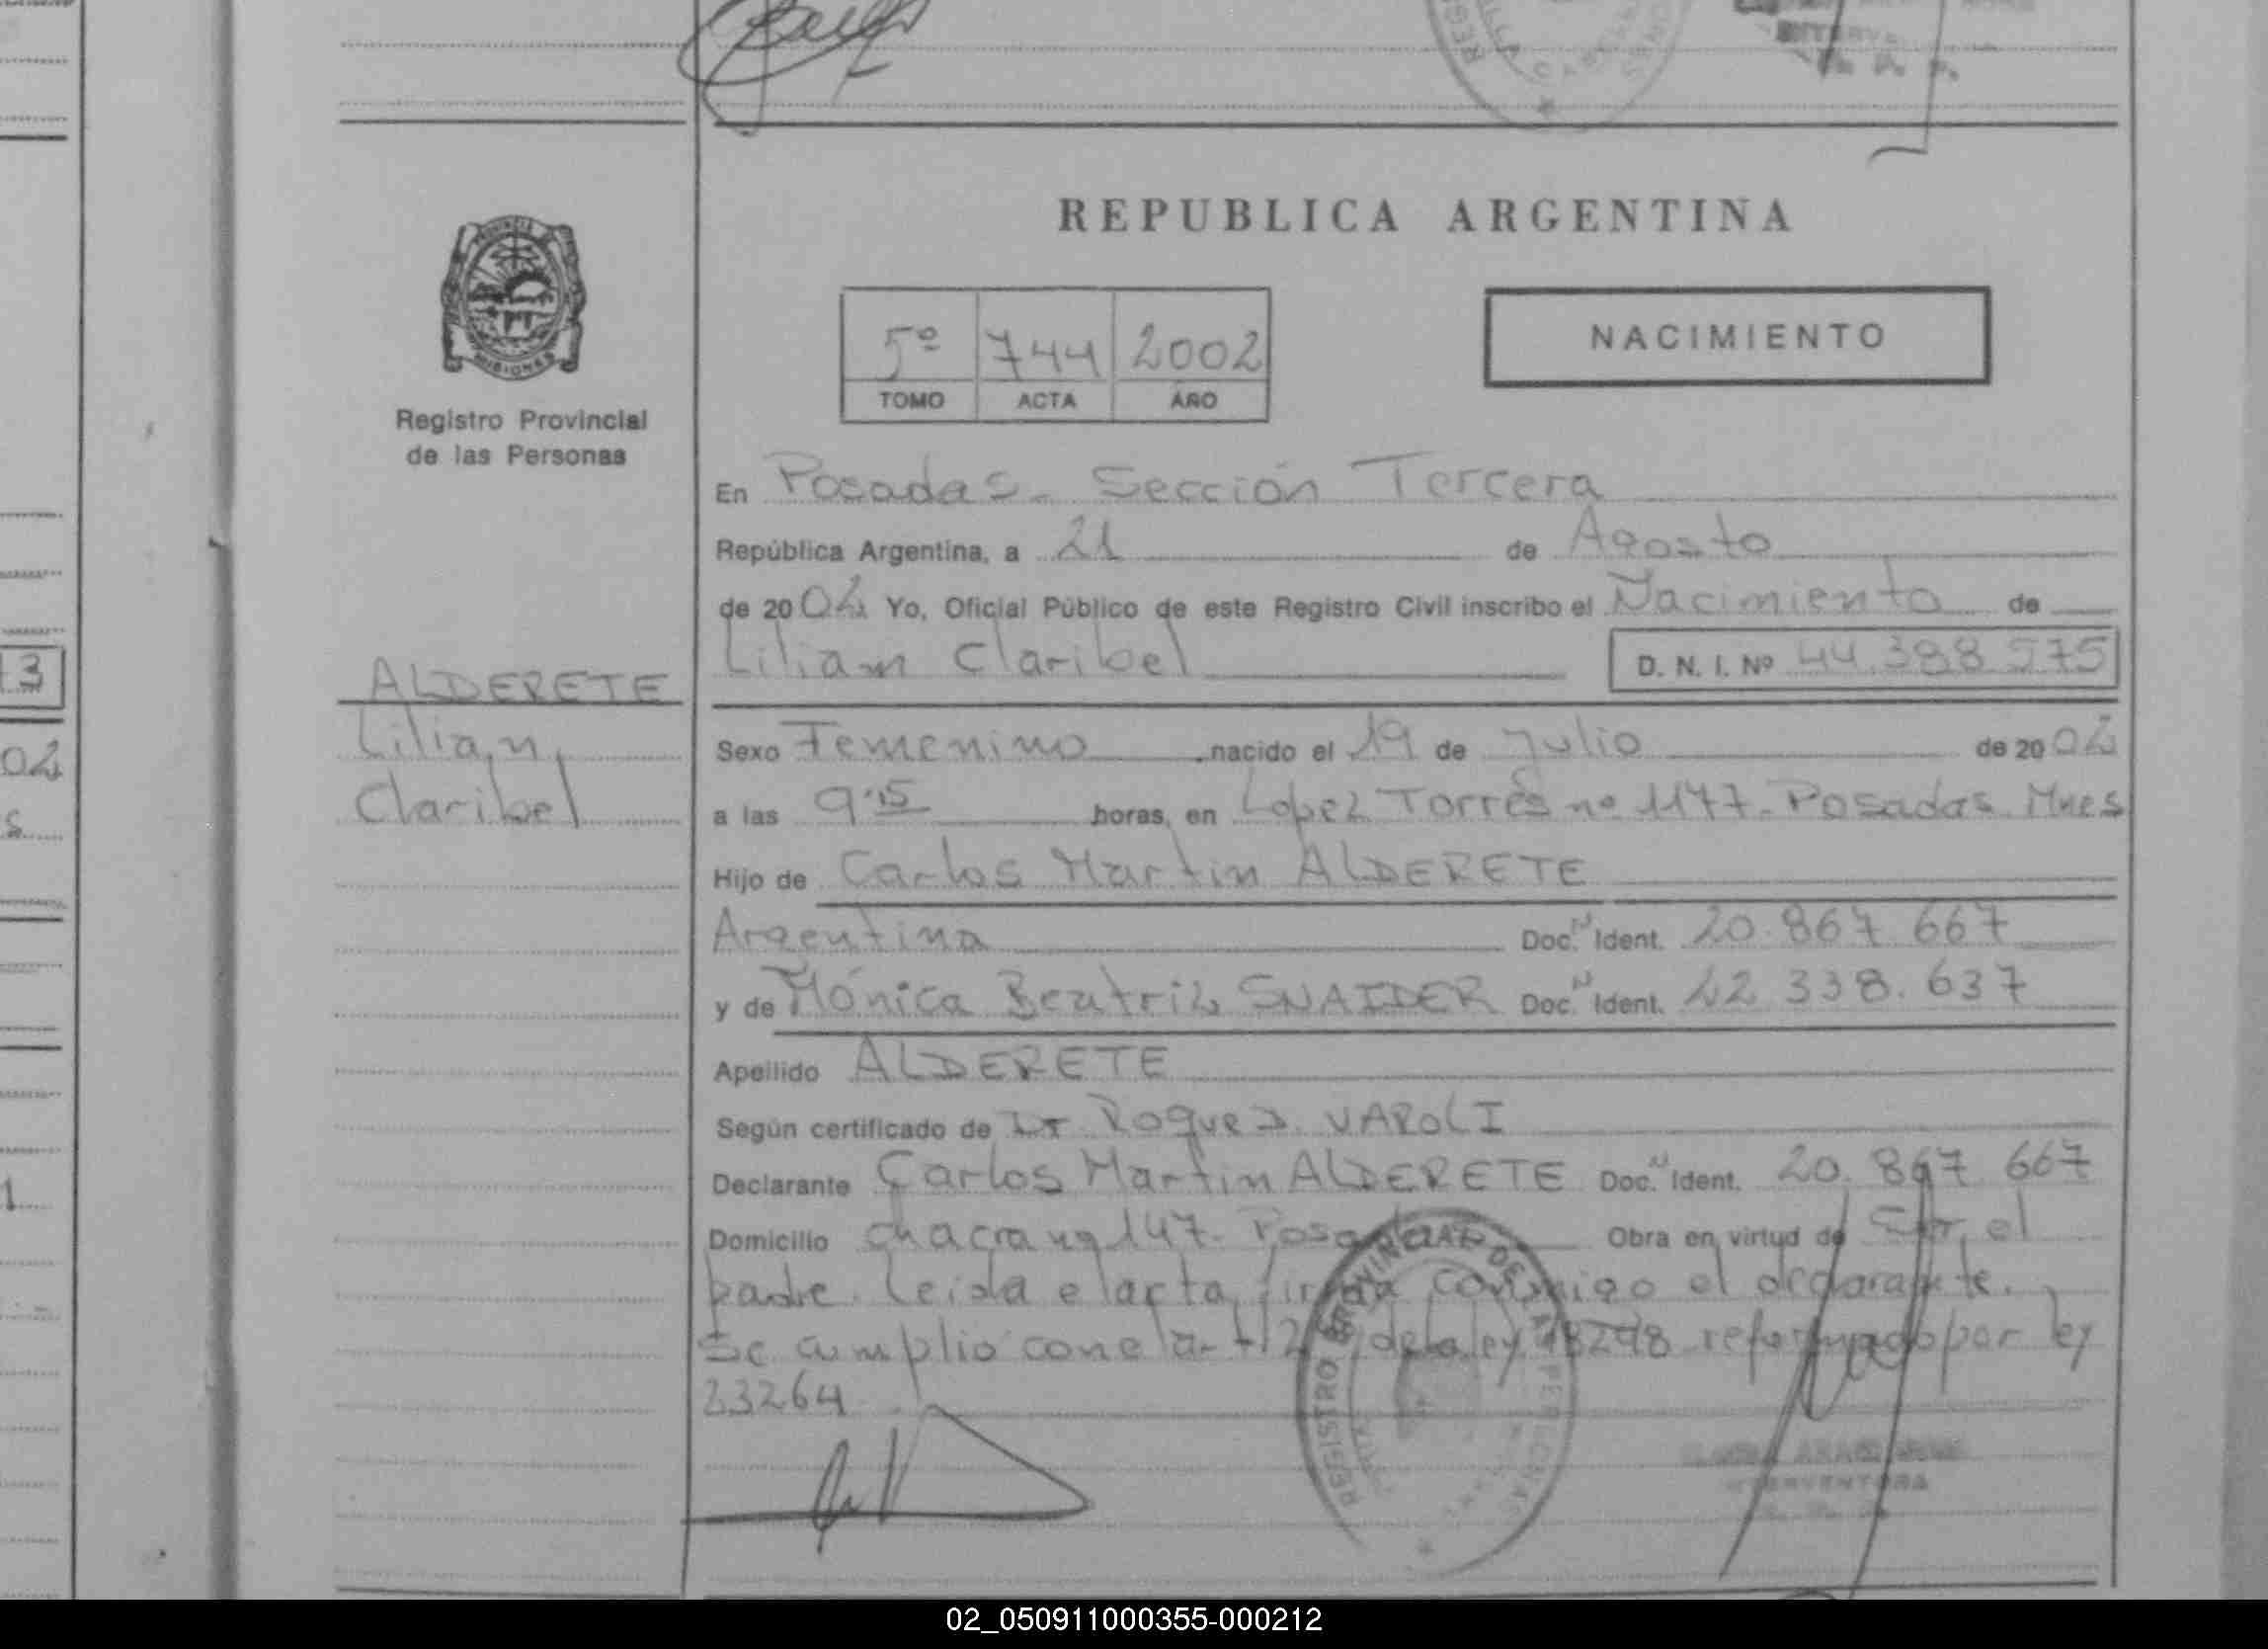 REPUBLICA ARGENTINA
5º 744 2002
TOMO ACTA AÑO
NACIMIENTO
PROVINCIA DE
MISIONES
Registro Provincial
de las Personas
ALDERETE
Lilian
Claribel
En Posadas - Sección Tercera
República Argentina, a 21 de Agosto
de 2002 Yo, Oficial Público de este Registro Civil inscribo el Nacimiento de
Lilian Claribel D. N. I. Nº 44.388 575
Sexo Femenino nacido el 19 de Julio de 2002
a las 9:15 horas, en Lopez Torres nº 1177 - Posadas Mnes
Hijo de Carlos Martin ALDERETE
Argentina Doc. N Ident. 20.867 667
y de Mónica Beatriz SNAIDER Doc. N Ident. 22 338.637
Apellido ALDERETE
Según certificado de Dr Roque D. VAROLI
Declarante Carlos Martin ALDERETE Doc. N Ident. 20.867 667
Domicilio chacra nº 147 - Posadas Obra en virtud de Ser el
padre. Leida el acta, firma conmigo el declarante.
Se cumplio con el art 2 de la ley 18248 reformado por ley
23264
REGISTRO PROVINCIAL DE LAS PERSONAS
INTERVENTORA
3
02
02_050911000355-000212